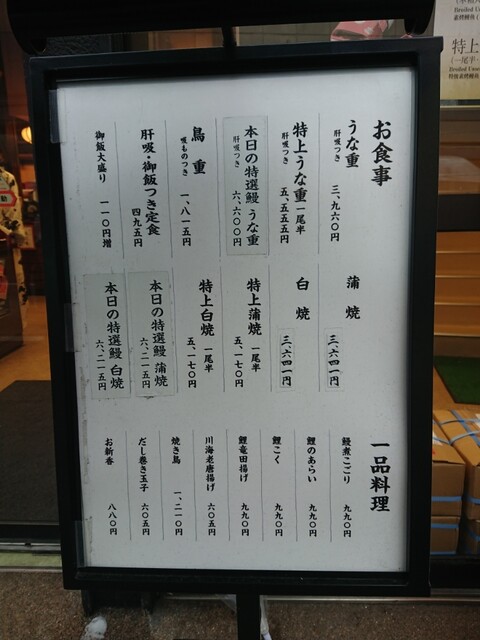 お食事
うな重 肝吸つき 三、九六〇円
特上うな重 一尾半 肝吸つき 五、五五五円
本日の特選鰻 うな重 肝吸つき 六、六〇〇円
鳥重 吸ものつき 一、八一五円
肝吸・御飯つき定食 四九五円
御飯大盛り 一一〇円増
蒲焼 三、六四一円
白焼 三、六四一円
特上蒲焼 一尾半 五、一七〇円
特上白焼 一尾半 五、一七〇円
本日の特選鰻 蒲焼 六、二一五円
本日の特選鰻 白焼 六、二一五円
一品料理
鰻煮こごり 九九〇円
鯉のあらい 九九〇円
鯉こく 九九〇円
鯉竜田揚げ 九九〇円
川海老唐揚げ 六〇五円
焼き鳥 一、二一〇円
だし巻き玉子 六〇五円
お新香 八八〇円
特上